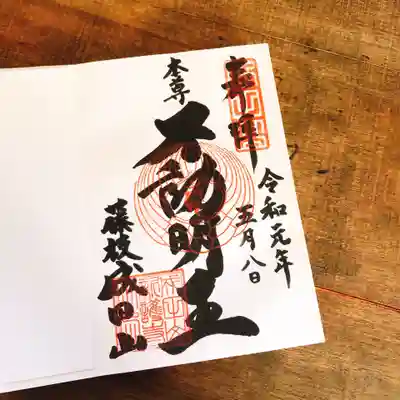 奉拝
令和元年
五月八日
本尊
不動明王
藤枝成田山